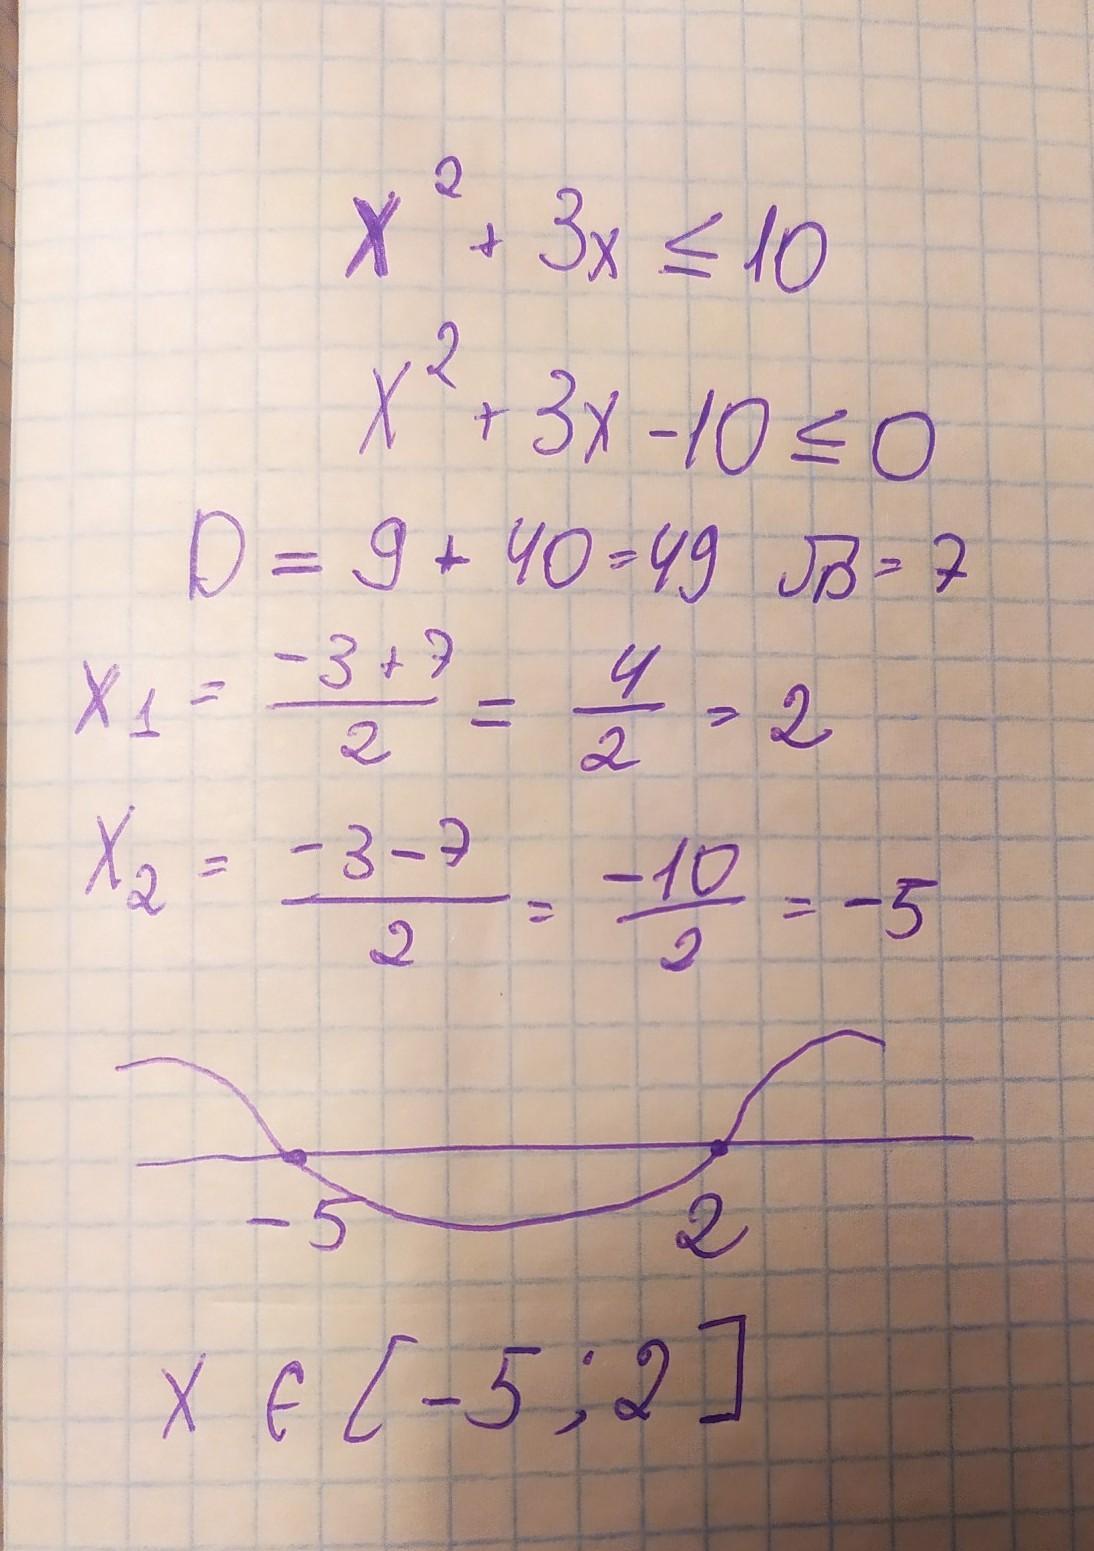 x² + 3x ≤ 10
x² + 3x - 10 ≤ 0
D = 9 + 40 = 49 √D = 7
x₁ = (-3+7)/2 = 4/2 = 2
x₂ = (-3-7)/2 = -10/2 = -5
-5 2
x ∈ [-5; 2]